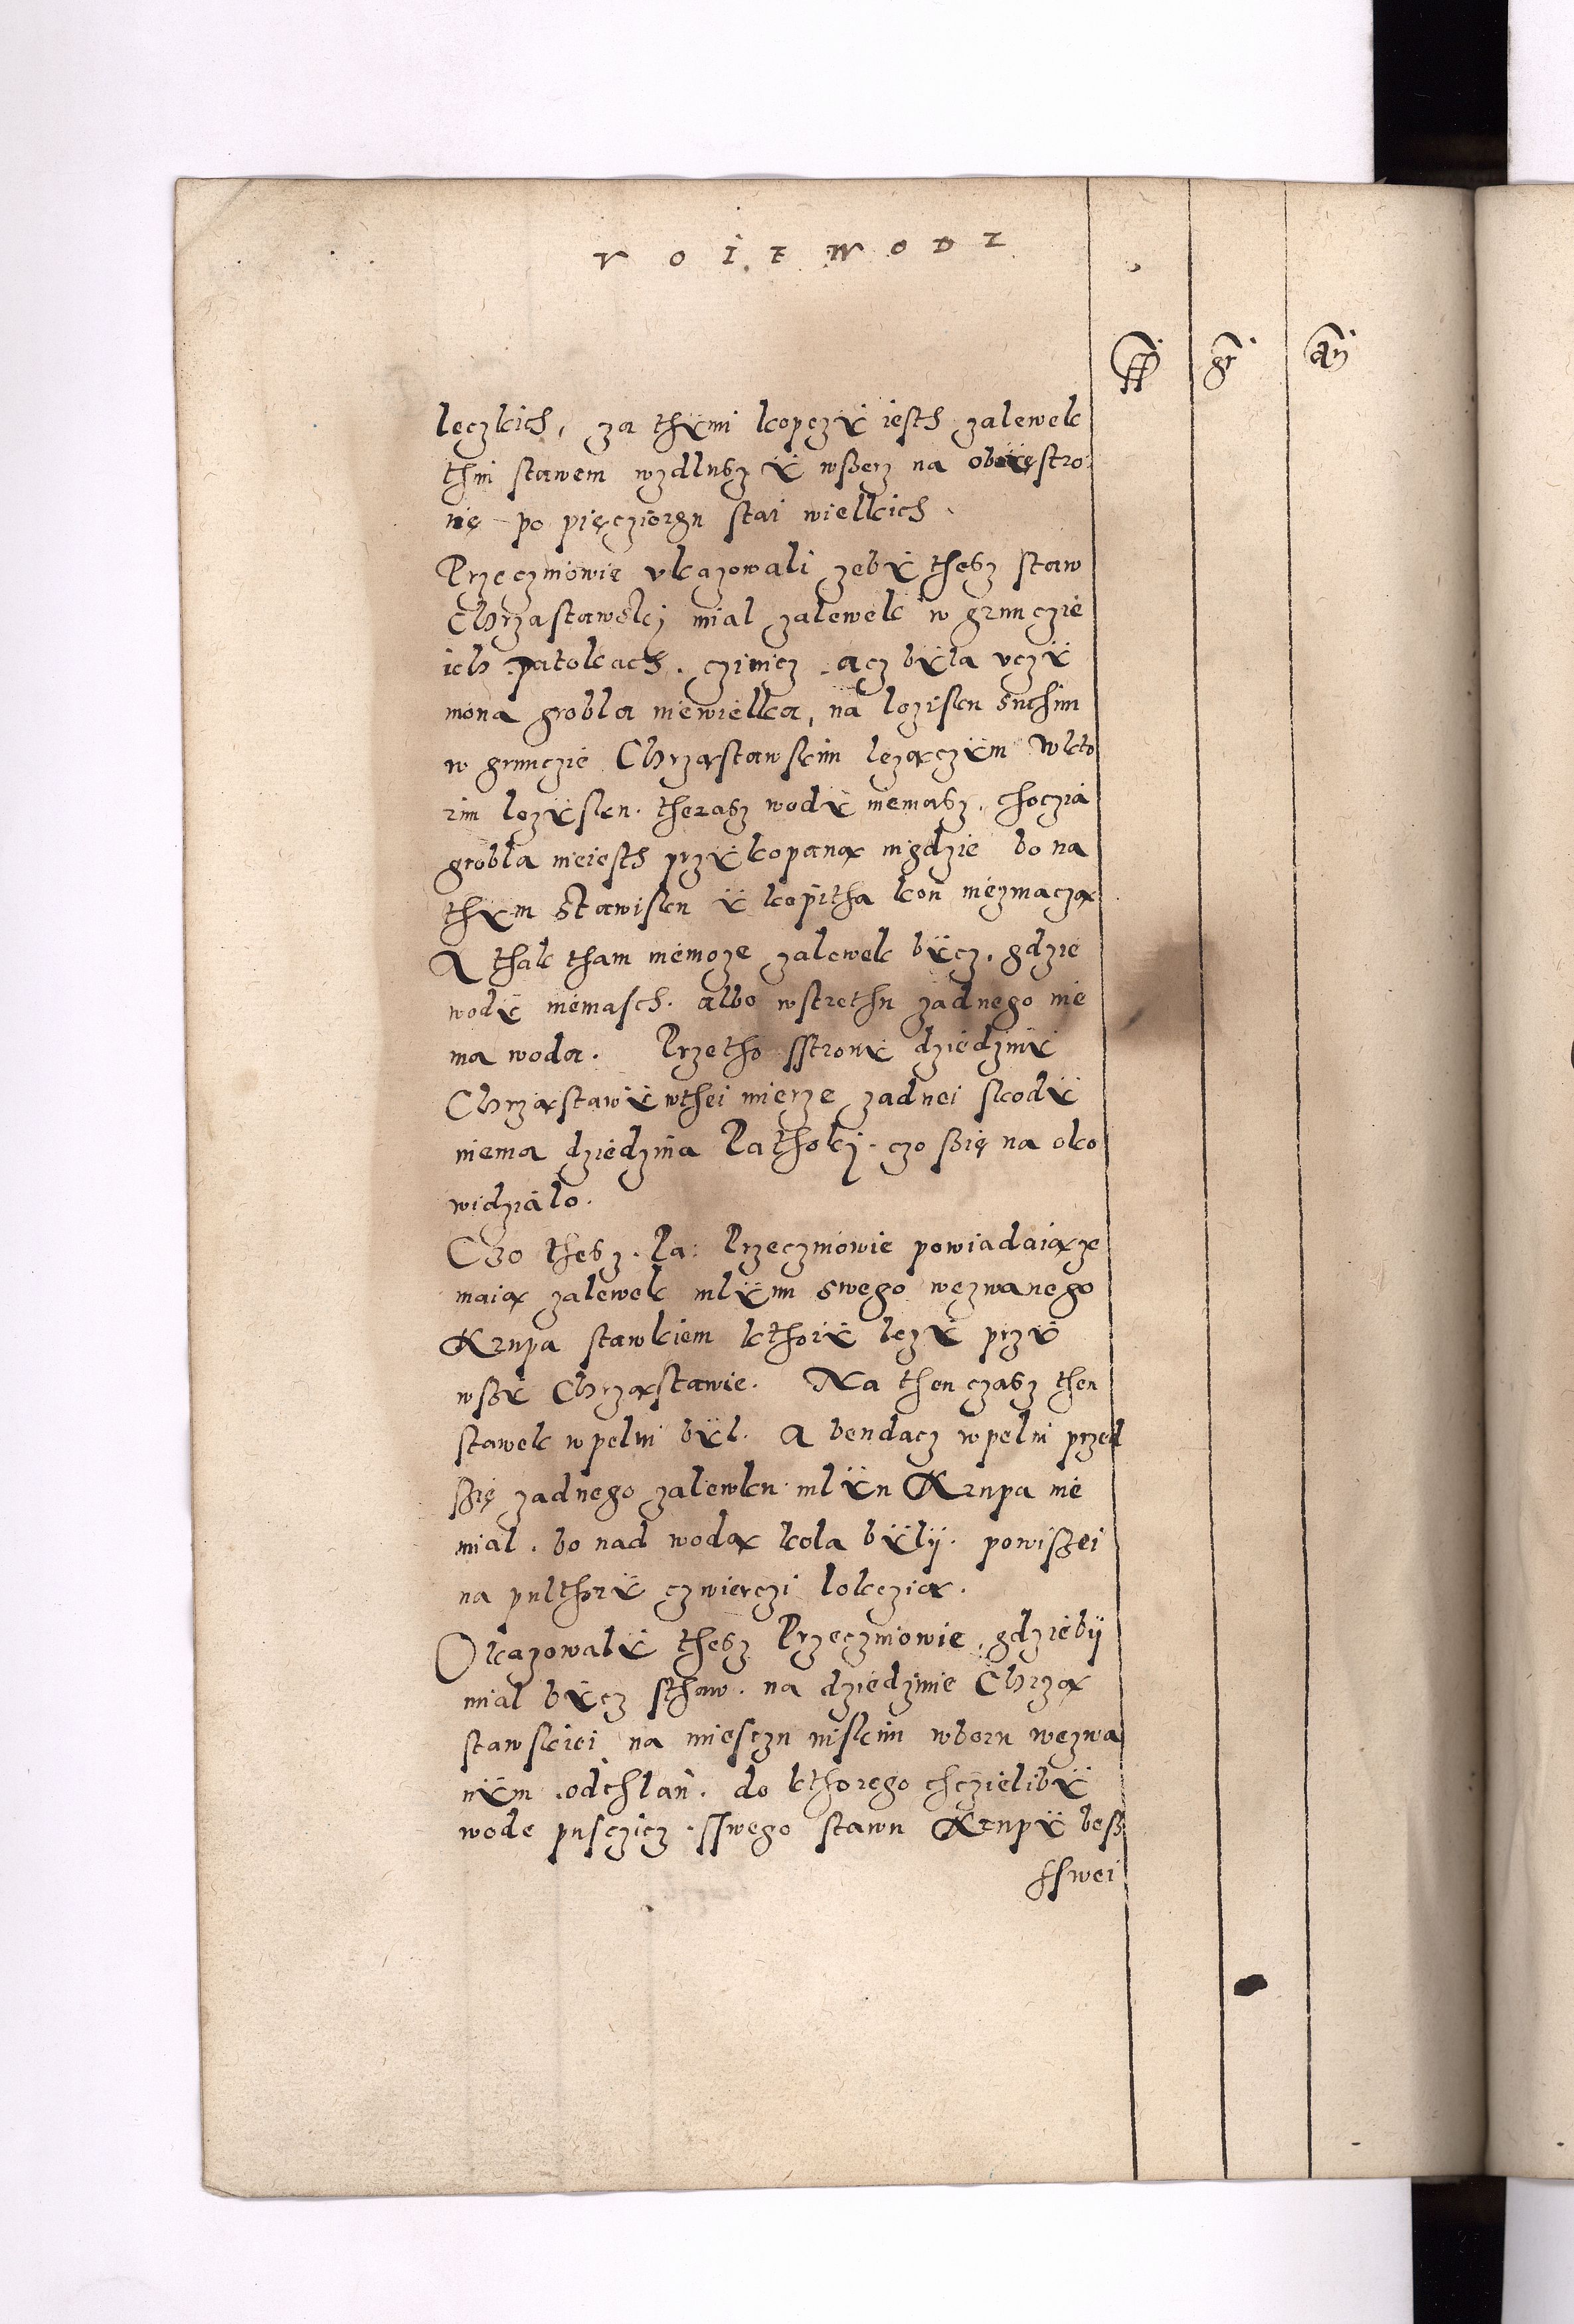 VOIEWODZ
gr
lęczkich, za thÿmi kopczÿ iesth zalewek
thm stawem wzdlusz ÿ wßerz na obie stro:
nię po pięcziorgu stai wielkich.
Przeczniowię vkazowali zebÿ thesz staw
Chrzastawskj mial zalewek w grunczie
ich patokach. czinicz. acz bÿla vczÿ
niona grobla niewielka, na lozisku suchim
w grunczie Chrząstawskim lezączÿm wkto
rim lozÿsku. therasz wodÿ niemasz, choczia
grobla nieiesth przÿkopaną nigdzie bo na
thÿm Stawisku ÿ kopitha kon niezmaczą
A thak tham niemoze zalewek bÿcz, gdzie
wodÿ niemasch. albo wstrethu zadnego nie
ma woda. Przetho sstronÿ dziedzinÿ
Chrząstawÿ wthei mierze zadnei skodÿ
niema dziedzina Pathokj. czo ßię na oko
widzialo.
Czo thesz. Pa: Przeczniowie powiadaią ze
maią zalewek mlÿnu swego wezwanego
Krupa stawkiem kthorÿ lezÿ przÿ
wßÿ Chrząstawie. Na then czasz then
stawek wpelni bÿl. A bendacz wpelni przed
ßię zadnego zalewku mlÿn Krupa nie
mial. bo nad wodą kola bÿlÿ. powißei
na pulthorÿ czwierczi lokczią.
Okazowalÿ thesz Przeczniowie, gdziebÿ
mial bÿcz sthaw. na dziedzinie Chrzą
stawskiei na miesczu niskim wboru wezwa
nÿm odchlan. do kthorego chczielibÿ
wode pusczicz. sswego stawu Krupÿ beß
sswei